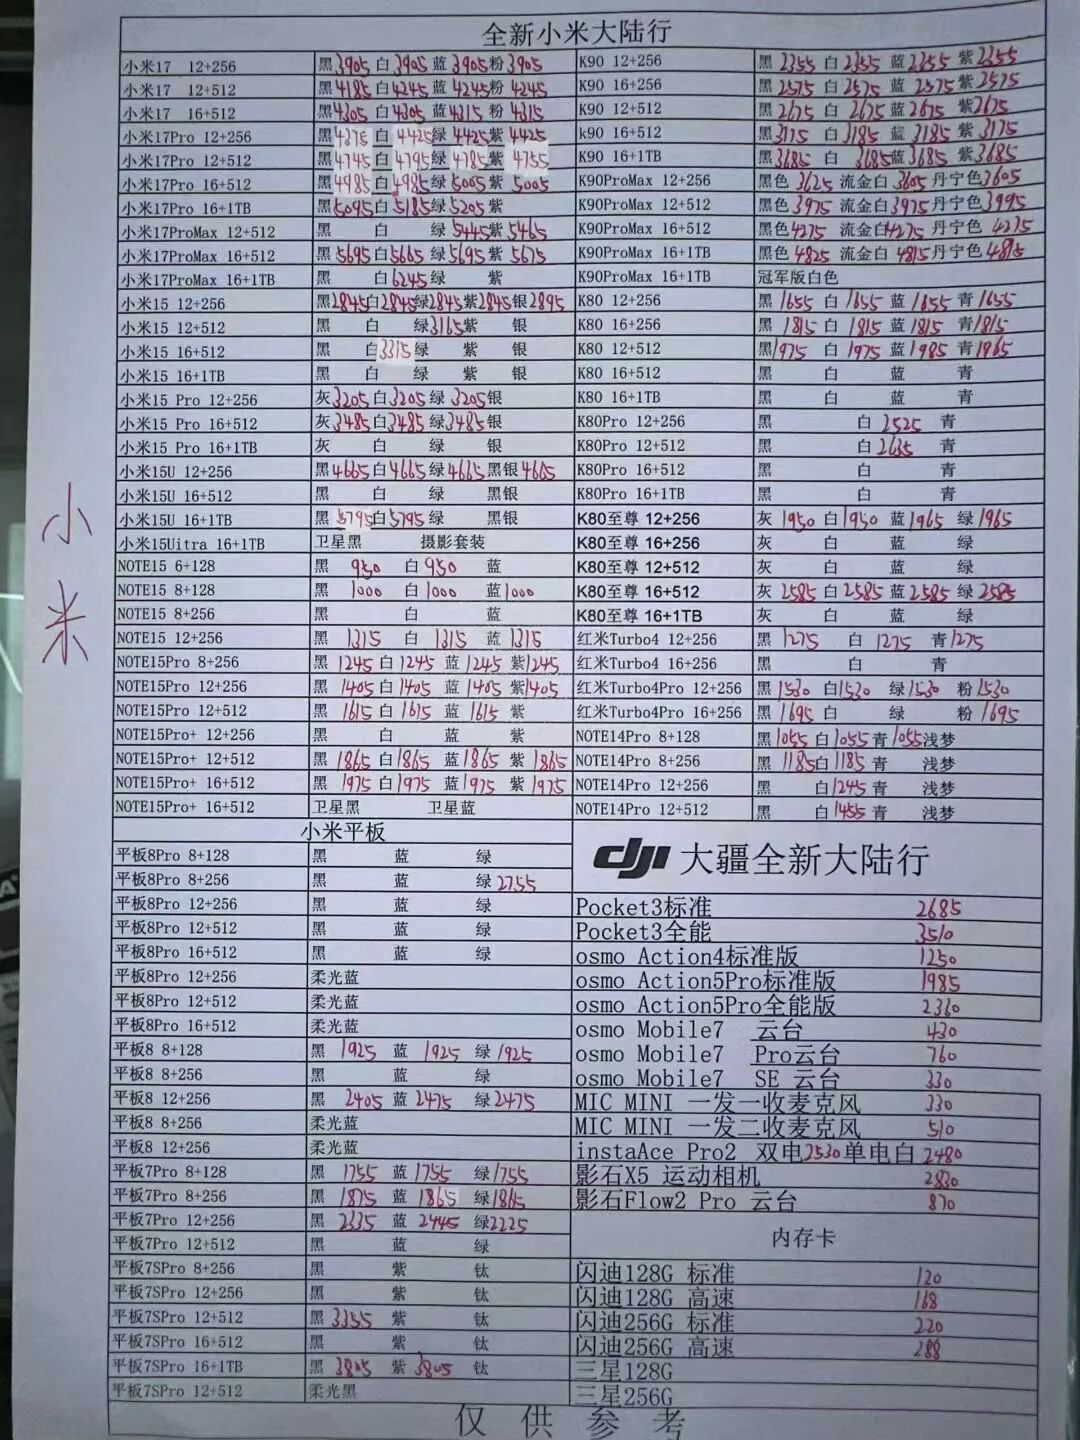 全新小米大陆行
小米17 12+256 黑3905 白3905 蓝3905 粉3905
小米17 12+512 黑4185 白4245 蓝4245 粉4245
小米17 16+512 黑4305 白4305 蓝4315 粉4315
小米17Pro 12+256 黑4375 白4425 绿4425 紫4425
小米17Pro 12+512 黑4745 白4795 绿4785 紫4755
小米17Pro 16+512 黑4985 白4985 绿5005 紫5005
小米17Pro 16+1TB 黑5095 白5185 绿5205 紫
小米17ProMax 12+512 黑 白 绿5445 紫5465
小米17ProMax 16+512 黑5695 白5665 绿5695 紫5675
小米17ProMax 16+1TB 黑 白6245 绿 紫
小米15 12+256 黑2845 白2845 绿2845 紫2845 银2895
小米15 12+512 黑 白 绿3165 紫 银
小米15 16+512 黑 白3315 绿 紫 银
小米15 16+1TB 黑 白 绿 紫 银
小米15 Pro 12+256 灰3205 白3205 绿3205 银
小米15 Pro 16+512 灰3485 白3485 绿3485 银
小米15 Pro 16+1TB 灰 白 绿 银
小米15U 12+256 黑4665 白4665 绿4665 黑银4665
小米15U 16+512 黑 白 绿 黑银
小米15U 16+1TB 黑5795 白5795 绿 黑银
小米15Uitra 16+1TB 卫星黑 摄影套装
NOTE15 6+128 黑 950 白950 蓝
NOTE15 8+128 黑 1000 白1000 蓝1000
NOTE15 8+256 黑 白 蓝
NOTE15 12+256 黑 1315 白 1315 蓝 1315
NOTE15Pro 8+256 黑 1245 白1245 蓝1245 紫1245
NOTE15Pro 12+256 黑 1405 白1405 蓝1405 紫1405
NOTE15Pro 12+512 黑 1615 白1615 蓝 1615 紫
NOTE15Pro+ 12+256 黑 白 蓝 紫
NOTE15Pro+ 12+512 黑 1865 白1865 蓝1865 紫1865
NOTE15Pro+ 16+512 黑 1975 白1975 蓝1975 紫1975
NOTE15Pro+ 16+512 卫星黑 卫星蓝
K90 12+256 黑 2355 白 2355 蓝2355 紫2355
K90 16+256 黑 2575 白 2575 蓝 2575 紫2575
K90 12+512 黑 2675 白 2675 蓝2675 紫2675
k90 16+512 黑3175 白 3185 蓝3185 紫3175
K90 16+1TB 黑3685 白 3685 蓝3685 紫3685
K90ProMax 12+256 黑色 3625 流金白3605 丹宁色3605
K90ProMax 12+512 黑色3975 流金白3975 丹宁色3995
K90ProMax 16+512 黑色4275 流金白4275 丹宁色4275
K90ProMax 16+1TB 黑色4825 流金白4815 丹宁色4815
K90ProMax 16+1TB 冠军版白色
K80 12+256 黑 1655 白 1655 蓝1655 青1655
K80 16+256 黑 1815 白 1815 蓝1815 青1815
K80 12+512 黑1975 白 1975 蓝1985 青1965
K80 16+512 黑 白 蓝 青
K80 16+1TB 黑 白 蓝 青
K80Pro 12+256 黑 白 2525 青
K80Pro 12+512 黑 白2635 青
K80Pro 16+512 黑 白 青
K80Pro 16+1TB 黑 白 青
K80至尊 12+256 灰 1950 白1950 蓝1965 绿1965
K80至尊 16+256 灰 白 蓝 绿
K80至尊 12+512 灰 白 蓝 绿
K80至尊 16+512 灰 2585 白2585 蓝2585 绿2585
K80至尊 16+1TB 灰 白 蓝 绿
红米Turbo4 12+256 黑 1275 白 1275 青1275
红米Turbo4 16+256 黑 白 青
红米Turbo4Pro 12+256 黑 1530 白1530 绿1530 粉1530
红米Turbo4Pro 16+256 黑 1695 白 绿 粉 1695
NOTE14Pro 8+128 黑1055 白1055 青1055 浅梦
NOTE14Pro 8+256 黑 1185 白1185 青 浅梦
NOTE14Pro 12+256 黑 白1245 青 浅梦
NOTE14Pro 12+512 黑 白1455 青 浅梦
小米
小米平板
平板8Pro 8+128 黑 蓝 绿
平板8Pro 8+256 黑 蓝 绿2755
平板8Pro 12+256 黑 蓝 绿
平板8Pro 12+512 黑 蓝 绿
平板8Pro 16+512 黑 蓝 绿
平板8Pro 12+256 柔光蓝
平板8Pro 12+512 柔光蓝
平板8Pro 16+512 柔光蓝
平板8 8+128 黑 1925 蓝 1925 绿1925
平板8 8+256 黑 蓝 绿
平板8 12+256 黑 2405 蓝 2475 绿2475
平板8 8+256 柔光蓝
平板8 12+256 柔光蓝
平板7Pro 8+128 黑 1755 蓝1755 绿1755
平板7Pro 8+256 黑 1875 蓝1865 绿1865
平板7Pro 12+256 黑 2335 蓝 2445 绿2225
平板7Pro 12+512 黑 蓝 绿
平板7SPro 8+256 黑 紫 钛
平板7SPro 12+256 黑 紫 钛
平板7SPro 12+512 黑 3355 紫 钛
平板7SPro 16+512 黑 紫 钛
平板7SPro 16+1TB 黑 3805 紫 3805 钛
平板7SPro 12+512 柔光黑
dji 大疆全新大陆行
Pocket3标准 2685
Pocket3全能 3510
osmo Action4标准版 1250
osmo Action5Pro标准版 1985
osmo Action5Pro全能版 2360
osmo Mobile7 云台 430
osmo Mobile7 Pro云台 760
osmo Mobile7 SE 云台 330
MIC MINI 一发一收麦克风 330
MIC MINI 一发二收麦克风 510
instaAce Pro2 双电2530 单电白 2480
影石X5 运动相机 2830
影石Flow2 Pro 云台 870
内存卡
闪迪128G 标准 120
闪迪128G 高速 168
闪迪256G 标准 220
闪迪256G 高速 288
三星128G
三星256G
仅供参考